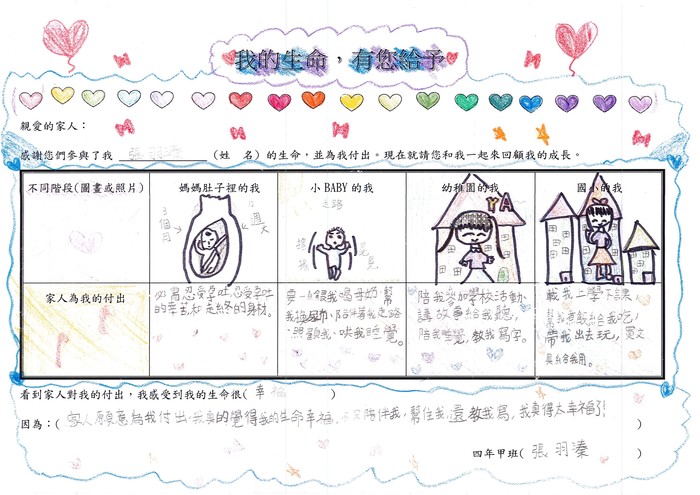 我的生命，有您給予
親愛的家人：
感謝您們參與了我 張羽溱 (姓 名) 的生命，並為我付出。現在就請您和我一起來回顧我的成長。
不同階段(圖畫或照片) 媽媽肚子裡的我 小BABY的我 幼稚園的我 國小的我
3個月
走路
YA
家人為我的付出
必需忍受孕吐,忍受孕吐
的辛苦和走終的身材。
餵我喝母奶、幫
我換尿布、陪伴著我走路
、照顧我、哄我睡覺。
陪我參加學校活動、
講故事給我聽,
陪我睡覺,教我寫字。
載我上學下課,
幫我煮飯給我吃,
帶我出去玩,買文
具給我用。
看到家人對我的付出，我感受到我的生命很( 幸福 )
因為：( 家人願意為我付出,我真的覺得我的生命幸福, 陪伴我,幫住我,還教我寫,我真得太幸福了! )
四年甲班( 張羽溱 )